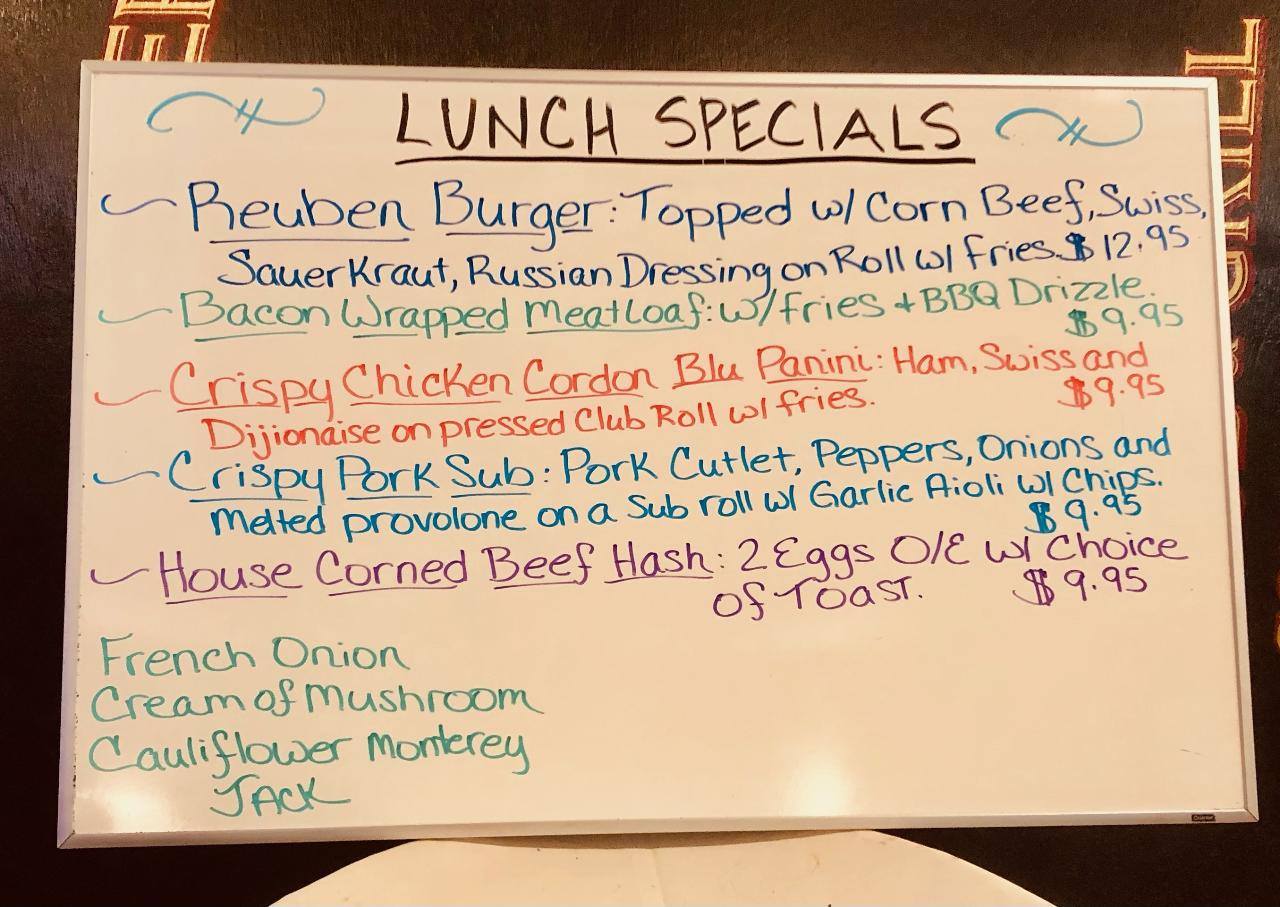 LUNCH SPECIALS
Reuben Burger: Topped w/ Corn Beef, Swiss,
SauerKraut, Russian Dressing on Roll w/ fries. $12.95
Bacon Wrapped Meatloaf: w/fries + BBQ Drizzle.
$9.95
Crispy Chicken Cordon Blu Panini: Ham, Swiss and
Dijionaise on pressed Club Roll w/ fries. $9.95
Crispy Pork Sub: Pork Cutlet, Peppers, Onions and
Melted provolone on a Sub roll w/ Garlic Aioli w/ Chips.
$9.95
House Corned Beef Hash: 2 Eggs O/E w/ Choice
of Toast. $9.95
French Onion
Cream of Mushroom
Cauliflower Monterey
JACK